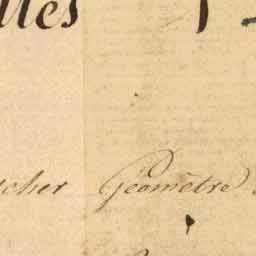 lles
cher Géomètre